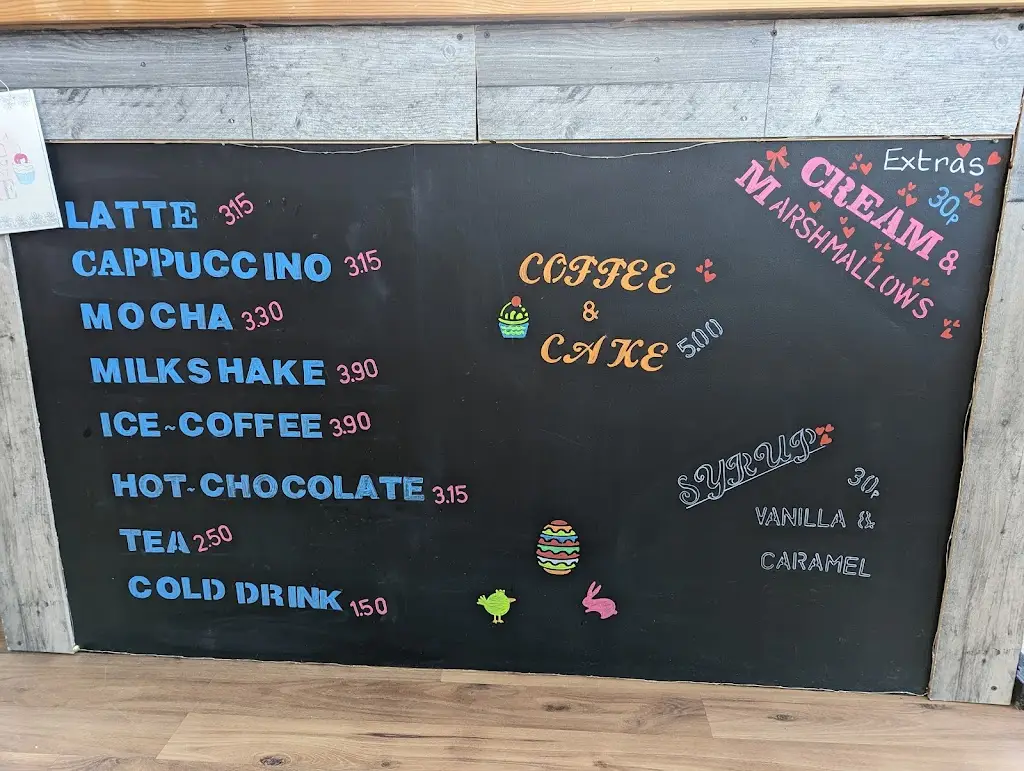 LATTE 3.15
CAPPUCCINO 3.15
MOCHA 3.30
MILKSHAKE 3.90
ICE~COFFEE 3.90
HOT~CHOCOLATE 3.15
TEA 2.50
COLD DRINK 1.50
COFFEE
&
CAKE 5.00
Extras
30p
CREAM &
MARSHMALLOWS
SYRUP
30p
VANILLA &
CARAMEL